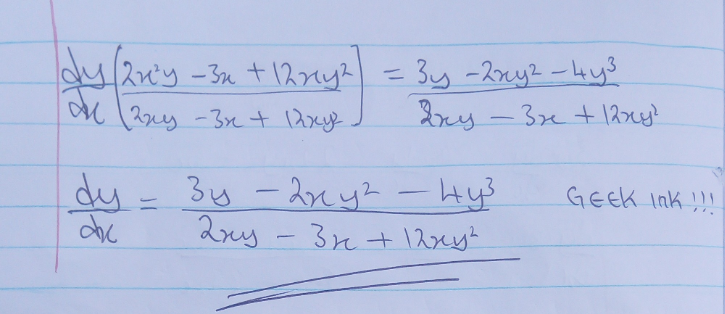 dy/dx (2x²y - 3x + 12xy² / 2xy - 3x + 12xy²) = 3y - 2xy² - 4y³ / 2xy - 3x + 12xy²
dy/dx = 3y - 2xy² - 4y³ / 2xy - 3x + 12xy² GEEK INK!!!